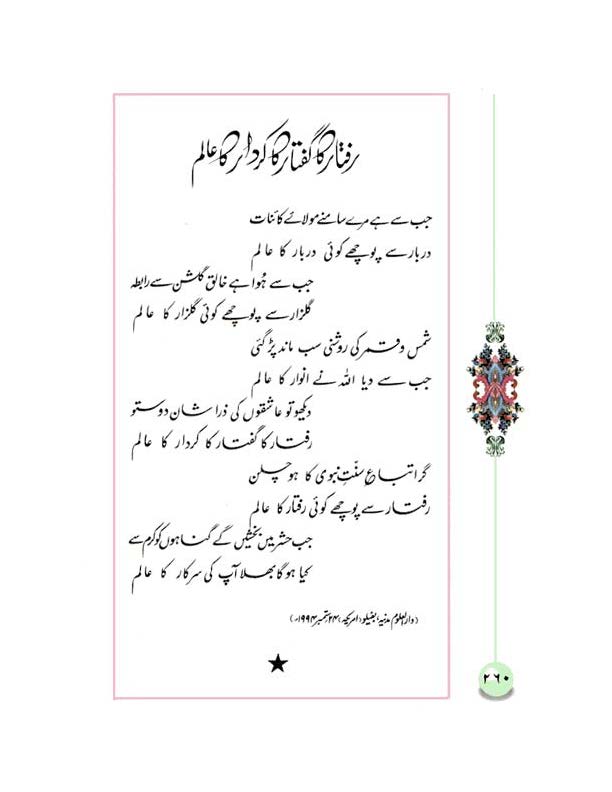 رفتار کا گفتار کا کردار کا عالم
جب سے ہے مرے سامنے مولائے کائنات
دربار سے پوچھے کوئی دربار کا عالم
جب سے ہُوا ہے خالقِ گلشن سے رابطہ
گلزار سے پوچھے کوئی گلزار کا عالم
شمس و قمر کی روشنی سب ماند پڑ گئی
جب سے دیا اللہ نے انوار کا عالم
دیکھو تو عاشقوں کی ذرا شان دوستو
رفتار کا گفتار کا کردار کا عالم
گر اتباعِ سنّتِ نبوی کا ہو چلن
رفتار سے پوچھے کوئی رفتار کا عالم
جب حشر میں بخشیں گے گناہوں کو کرم سے
کیا ہوگا بھلا آپ کی سرکار کا عالم
(دارالعلوم مدنیہ، بفیلو، امریکہ، ۲۴؍ستمبر ۱۹۹۴ء)
۲۶۰